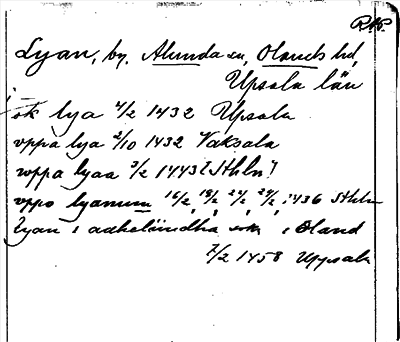 R.A.
Lyan, by, Alunda sn, Olands hd,
Upsala län
i
sk lya 4/2 1432 Upsala
vppa lya 2/10 1432 Vaksala
vppa lyaa 3/2 1443 (Sthlm)
vppo lyanum 16/2, 18/2, 24/2, 29/2, 1436 Sthlm
lyan i adhelündha sokn i Oland
7/2 1458 Uppsala